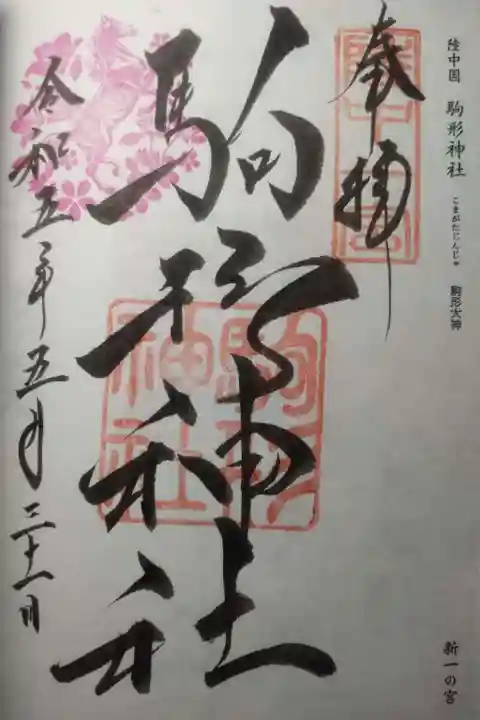 陸中国 駒形神社 こまがたじんじゃ 駒形大神
新一の宮
奉拝
駒形神社
駒形
神社
令和五年五月三十一日